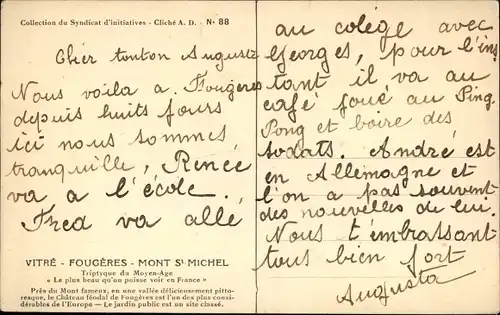 Collection du Syndicat d'initiatives - Cliché A. D. - Nº 88
Cher tonton Auguste
Nous voila a Fougères
depuis huits jours
ici nous sommes
tranquille, Renée
va a l'école.
Fred va allé
VITRÉ - FOUGÈRES - MONT St MICHEL
Triptyque du Moyen-Age
« Le plus beau qu'on puisse voir en France »
Près du Mont fameux, en une vallée délicieusement pitto-
resque, le Château féodal de Fougères est l'un des plus consi-
dérables de l'Europe — Le jardin public est un site classé.
au colège avec
Georges, pour l'ins
tant il va au
café joué au Ping
Pong et boire des
sodats. André est
en Allemagne et
l'on a pas souvent
des nouvelles de lui.
Nous t'embrassant
tous bien fort
Augusta